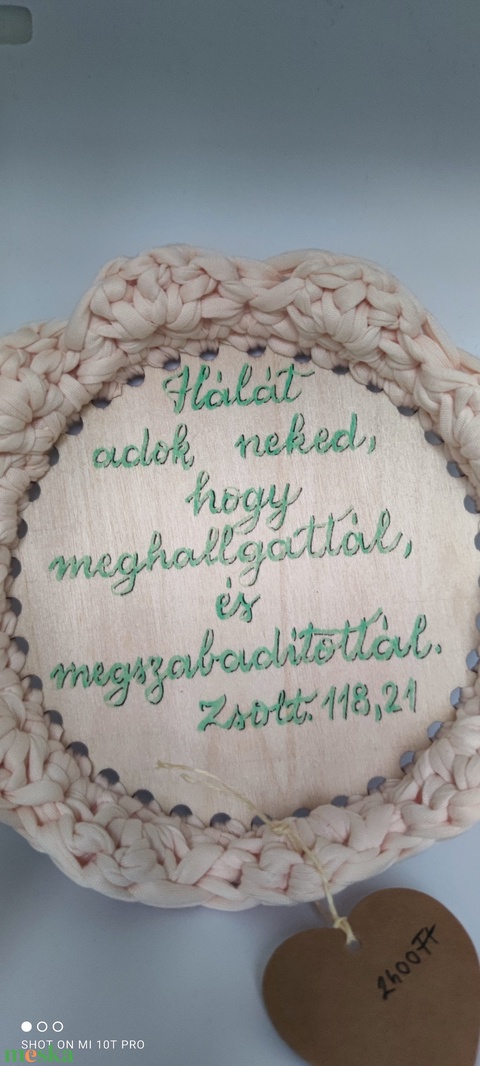 Hálát
adok neked,
hogy
meghallgattál,
és
megszabadítottál.
Zsolt. 118,21
2400 Ft
SHOT ON MI 10T PRO
meska